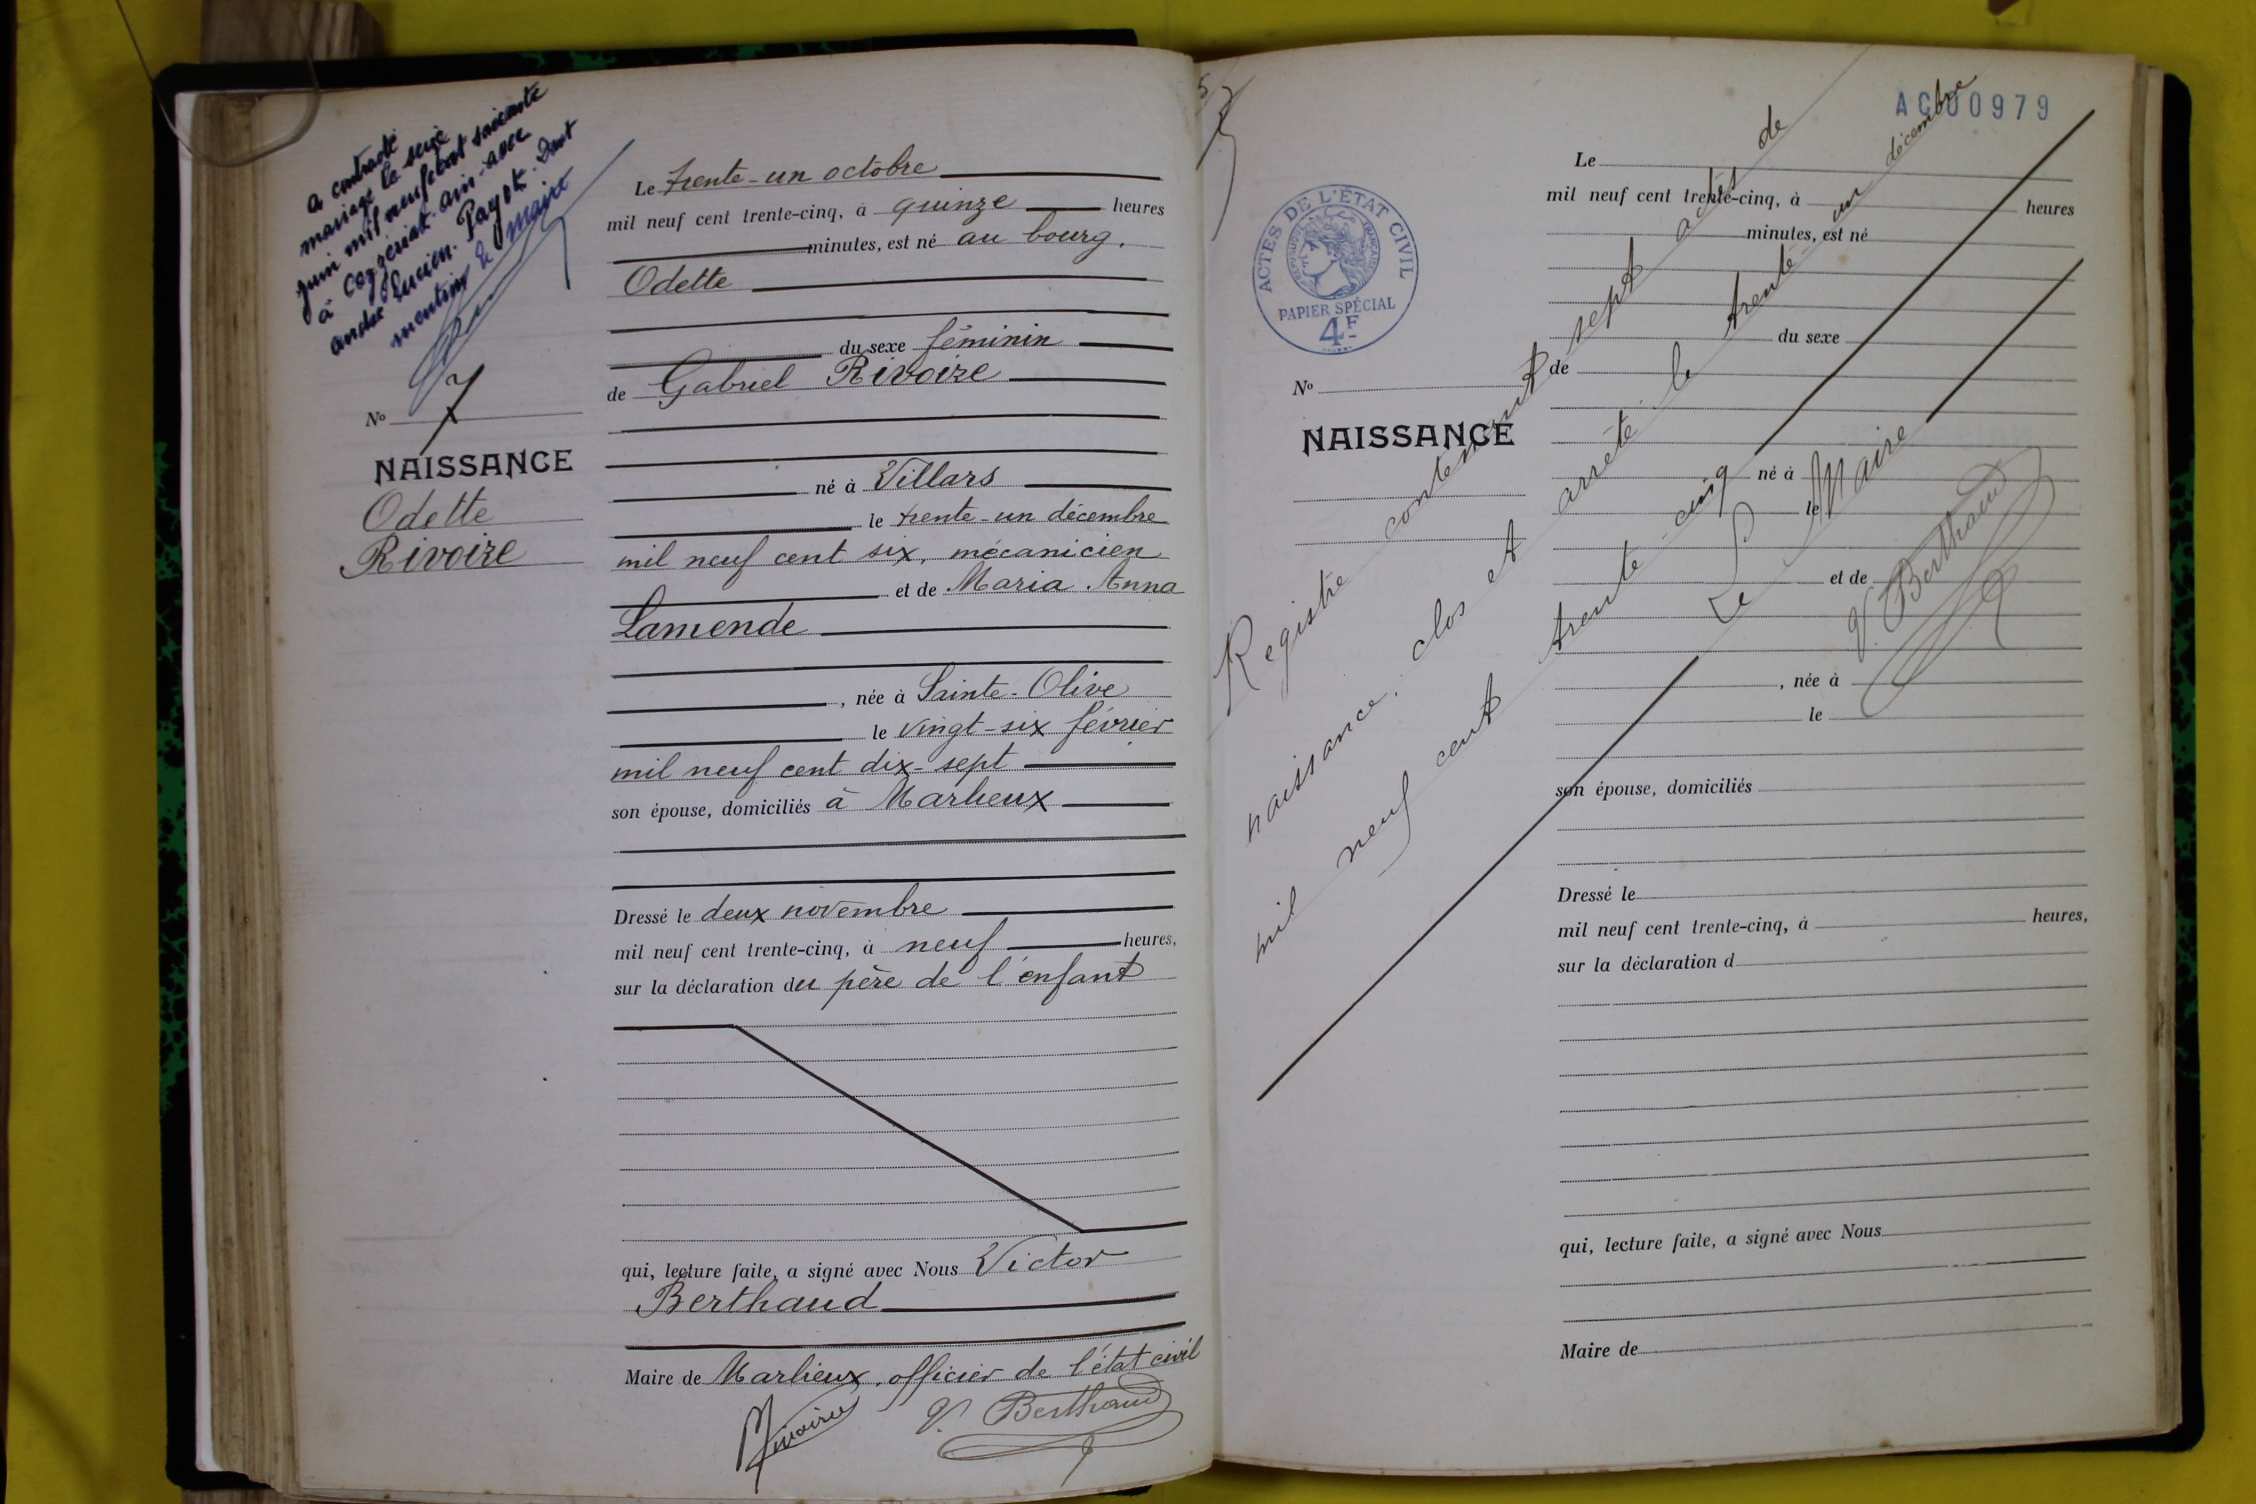 a contracté
mariage le seize
juin mil neuf cent soixante
à Cozzeriat. Ain. avec
andré Lucien. Payot. Dont
mention le maire
N° 7
NAISSANCE
Odette
Rivoire
Le trente-un octobre
mil neuf cent trente-cinq, à quinze heures
minutes, est né au bourg.
Odette
du sexe féminin
de Gabriel Rivoire
né à Villars
le trente-un décembre
mil neuf cent six, mécanicien
et de Maria Anna
Lamende
, née à Sainte-Olive
le vingt-six février
mil neuf cent dix-sept
son épouse, domiciliés à Marlieux
Dressé le deux novembre
mil neuf cent trente-cinq, à neuf heures,
sur la déclaration du père de l'enfant
qui, lecture faite, a signé avec Nous Victor
Berthaud
Maire de Marlieux, officier de l'état civil
Rivoire V. Berthaud
AC00979
ACTES DE L'ÉTAT CIVIL
RÉPUBLIQUE FRANÇAISE
PAPIER SPÉCIAL
4F
N°
NAISSANCE
Le
mil neuf cent trente-cinq, à heures
minutes, est né
du sexe
de
né à
le
et de
, née à
le
son épouse, domiciliés
Dressé le
mil neuf cent trente-cinq, à heures,
sur la déclaration d
qui, lecture faite, a signé avec Nous
Maire de
Registre contenant sept actes de
naissance, clos et arrêté le trente-un décembre
mil neuf cent trente cinq
Le Maire
V. Berthaud